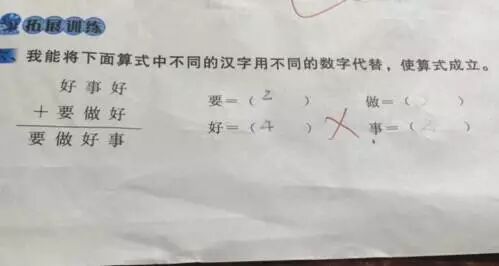 拓展训练
我能将下面算式中不同的汉字用不同的数字代替，使算式成立。
好 事 好
+ 要 做 好
要 做 好 事
要=( 2 ) 做=( )
好=( 4 ) 事=( )